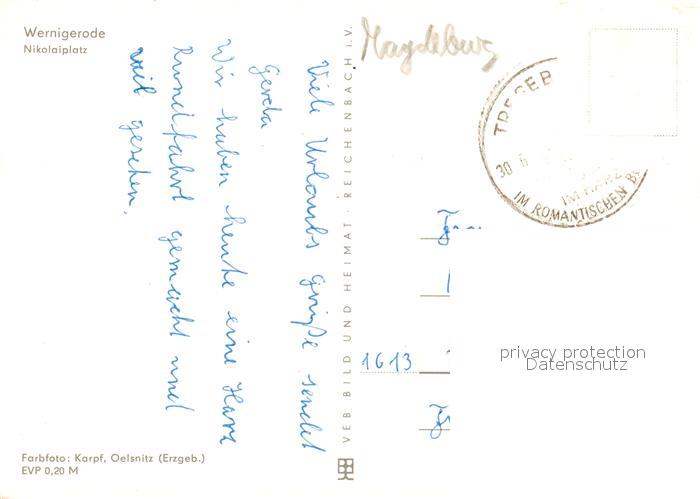 Wernigerode
Nikolaiplatz
Viele Urlaubs grüße sendet
Gerda.
Wir haben heute eine Harz
Rundfahrt gemacht und
viel gesehen.
Farbfoto: Karpf, Oelsnitz (Erzgeb.)
EVP 0,20 M
VEB BILD UND HEIMAT · REICHENBACH i.V.
Magdeburg
30 6
IM HARZ
IM ROMANTISCHEN
1613
privacy protection
Datenschutz